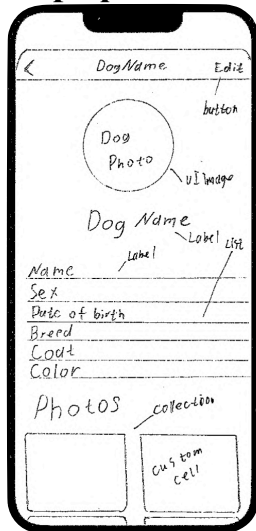 < DogName Edit
button
Dog
Photo
UI Image
Dog Name
Label
List
Label
Name
Sex
Date of birth
Breed
Coat
Color
Photos
collection
custom
cell